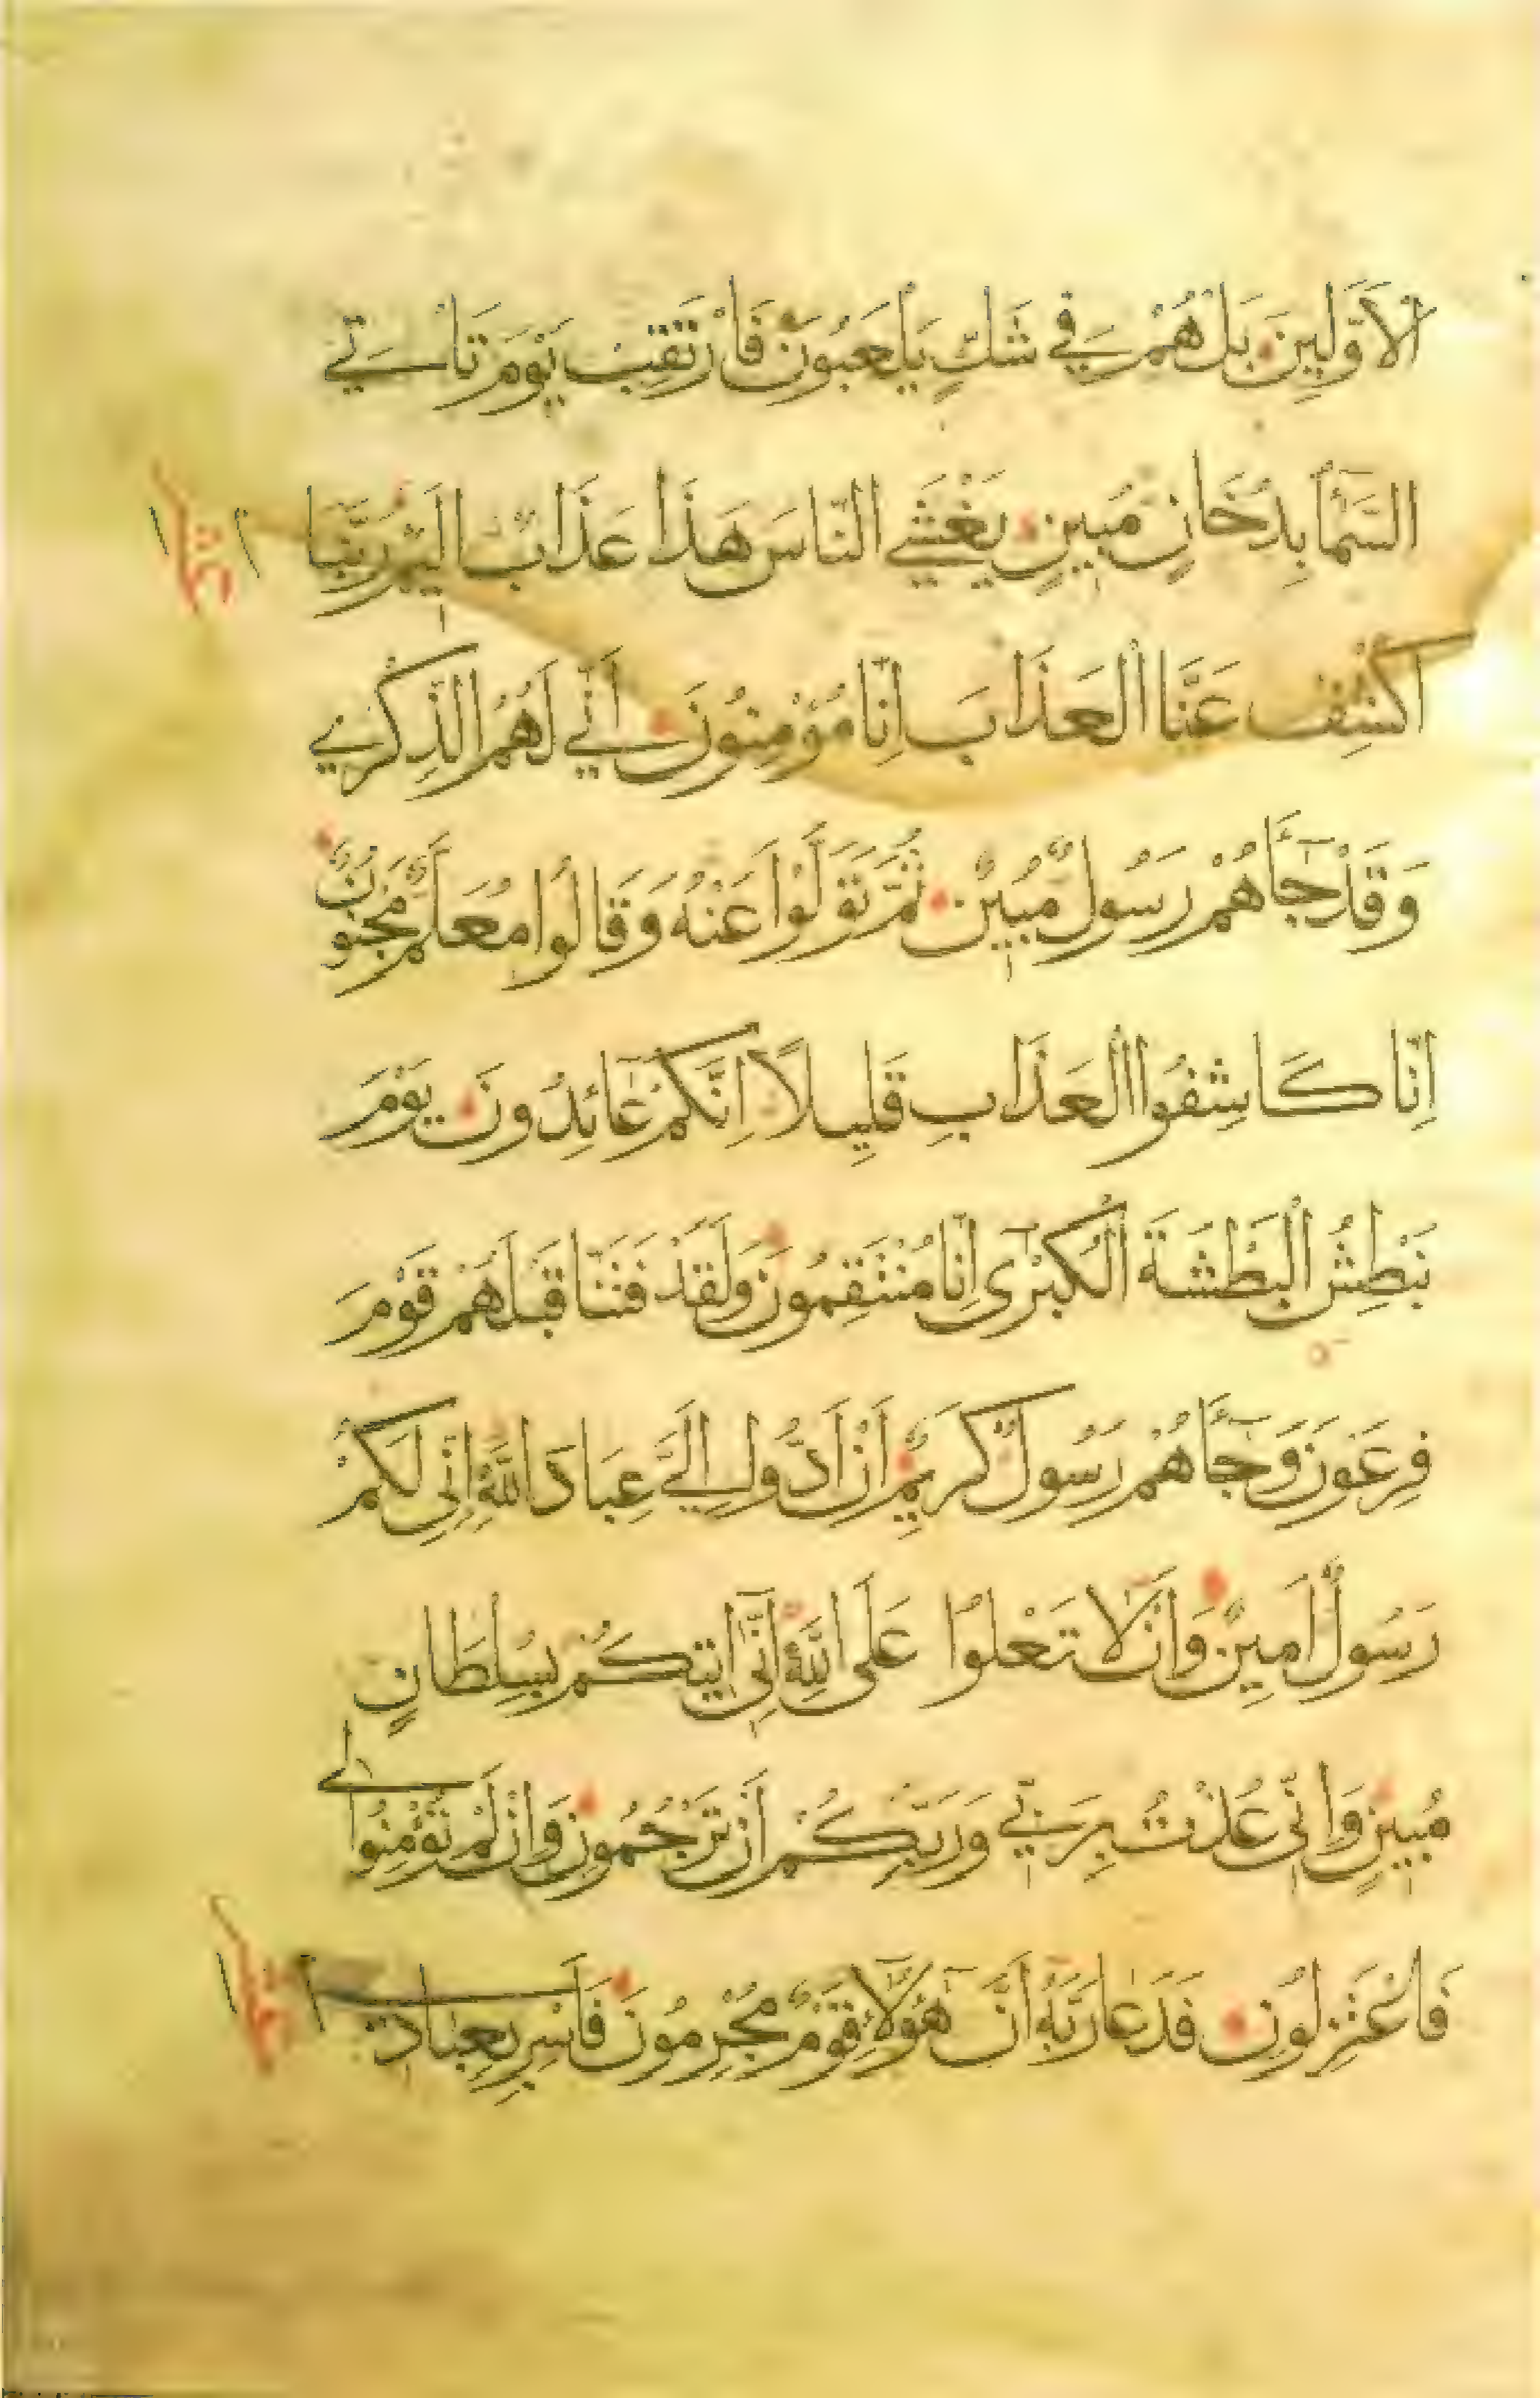 الْاَوَّلِينَ بَلْ هُمْ فِي شَكٍّ يَلْعَبُونَ فَارْتَقِبْ يَوْمَ تَاْتِي
السَّمَآءُ بِدُخَانٍ مُبِينٍ يَغْشَي النَّاسَ هَذَا عَذَابٌ اَلِيمٌ رَبَّنَا
اكْشِفْ عَنَّا الْعَذَابَ اِنَّا مُؤْمِنُونَ اَنَّي لَهُمُ الذِّكْرَي
وَقَدْ جَآءَهُمْ رَسُولٌ مُبِينٌ ثُمَّ تَوَلَّوْا عَنْهُ وَقَالُوا مُعَلَّمٌ مَجْنُونٌ
اِنَّا كَاشِفُوا الْعَذَابِ قَلِيلًا اِنَّكُمْ عَائِدُونَ يَوْمَ
نَبْطِشُ الْبَطْشَةَ الْكُبْرَى اِنَّا مُنْتَقِمُونَ وَلَقَدْ فَتَنَّا قَبْلَهُمْ قَوْمَ
فِرْعَوْنَ وَجَآءَهُمْ رَسُولٌ كَرِيمٌ اَنْ اَدُّوا اِلَيَّ عِبَادَ اللهِ اِنِّي لَكُمْ
رَسُولٌ اَمِينٌ وَاَنْ لَا تَعْلُوا عَلَى اللهِ اِنِّي اتِيكُمْ بِسُلْطَانٍ
مُبِينٍ وَاِنِّي عُذْتُ بِرَبِّي وَرَبِّكُمْ اَنْ تَرْجُمُونِ وَاِنْ لَمْ تُؤْمِنُوا لِي
فَاعْتَزِلُونِ فَدَعَا رَبَّهُ اَنَّ هَؤُلَاءِ قَوْمٌ مُجْرِمُونَ فَاَسْرِ بِعِبَادِي